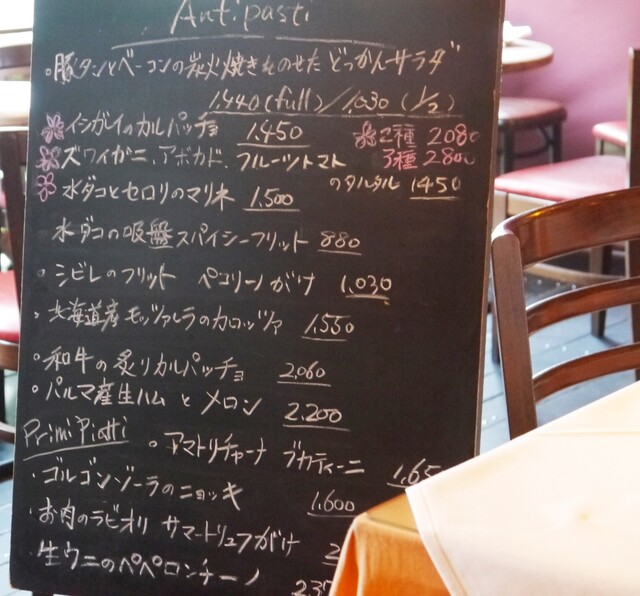 Antipasti
・豚タンとベーコンの炭火焼きをのせた どっかんサラダ
1,440(full)/1,030(1/2)
イシガイのカルパッチョ 1,450 2種 2080
ズワイガニ、アボカド、フルーツトマト 3種 2800
のタルタル 1450
水ダコとセロリのマリネ 1,500
水ダコの吸盤スパイシーフリット 880
・シビレのフリット ペコリーノがけ 1,030
・北海道産モッツァレラのカロッツァ 1,550
・和牛の炙りカルパッチョ 2,060
・パルマ産生ハムとメロン 2,200
Primi Piatti
・アマトリチャーナ ブカティーニ 1,65
・ゴルゴンゾーラのニョッキ 1,600
・お肉のラビオリ サマートリュフがけ 2
生ウニのペペロンチーノ 2,3